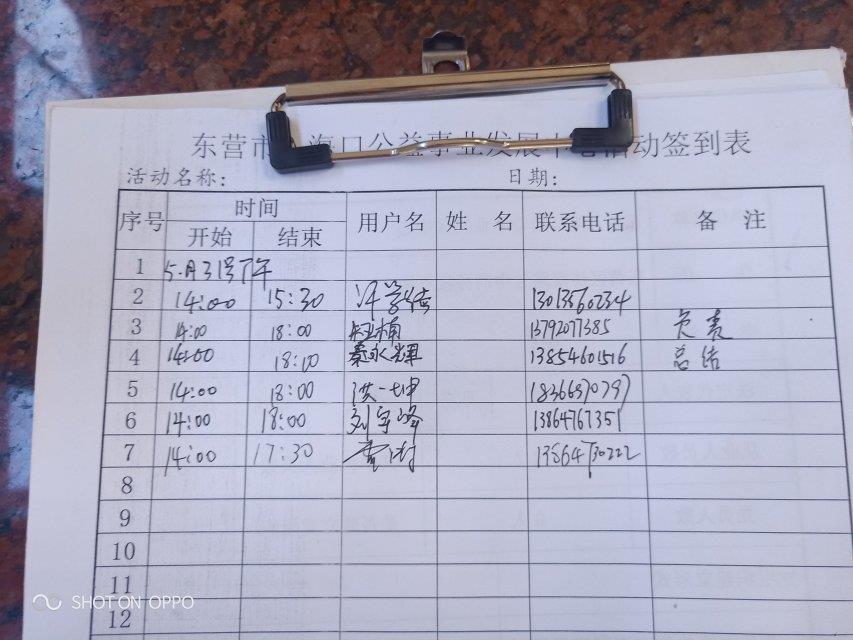 东营市 海口公益事业发展中心活动签到表
活动名称: 日期:
序号 时间 用户名 姓 名 联系电话 备 注
开始 结束
1 5月3号下午
2 14:00 15:30
3 14:00 18:00 13792077385 负责
4 14:00 18:00 秦永辉 13854601516 总结
5 14:00 18:00 洪一坤 18366870797
6 14:00 18:00 刘宇峰 13864767351
7 14:00 17:30 13864730222
8
9
10
11
12
SHOT ON OPPO